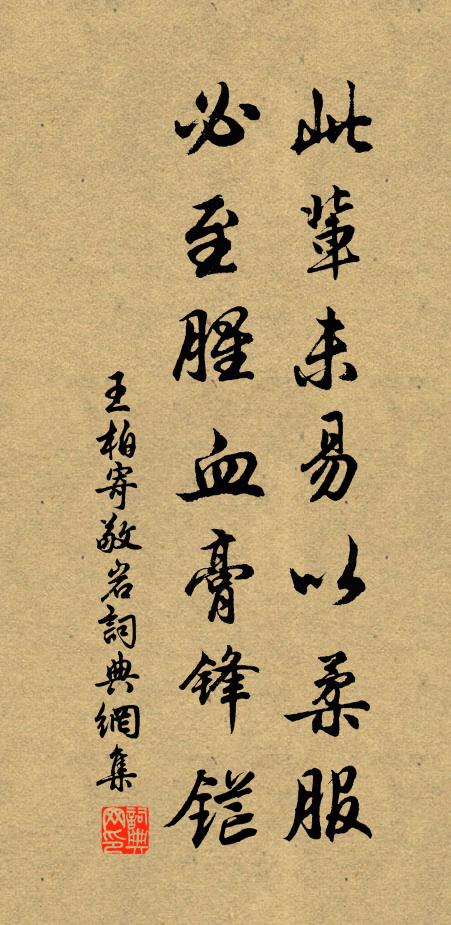 此輩未易以柔服
必至腥血膏鋒鋩
王柏寄敬岩詞典網集
詞典網印